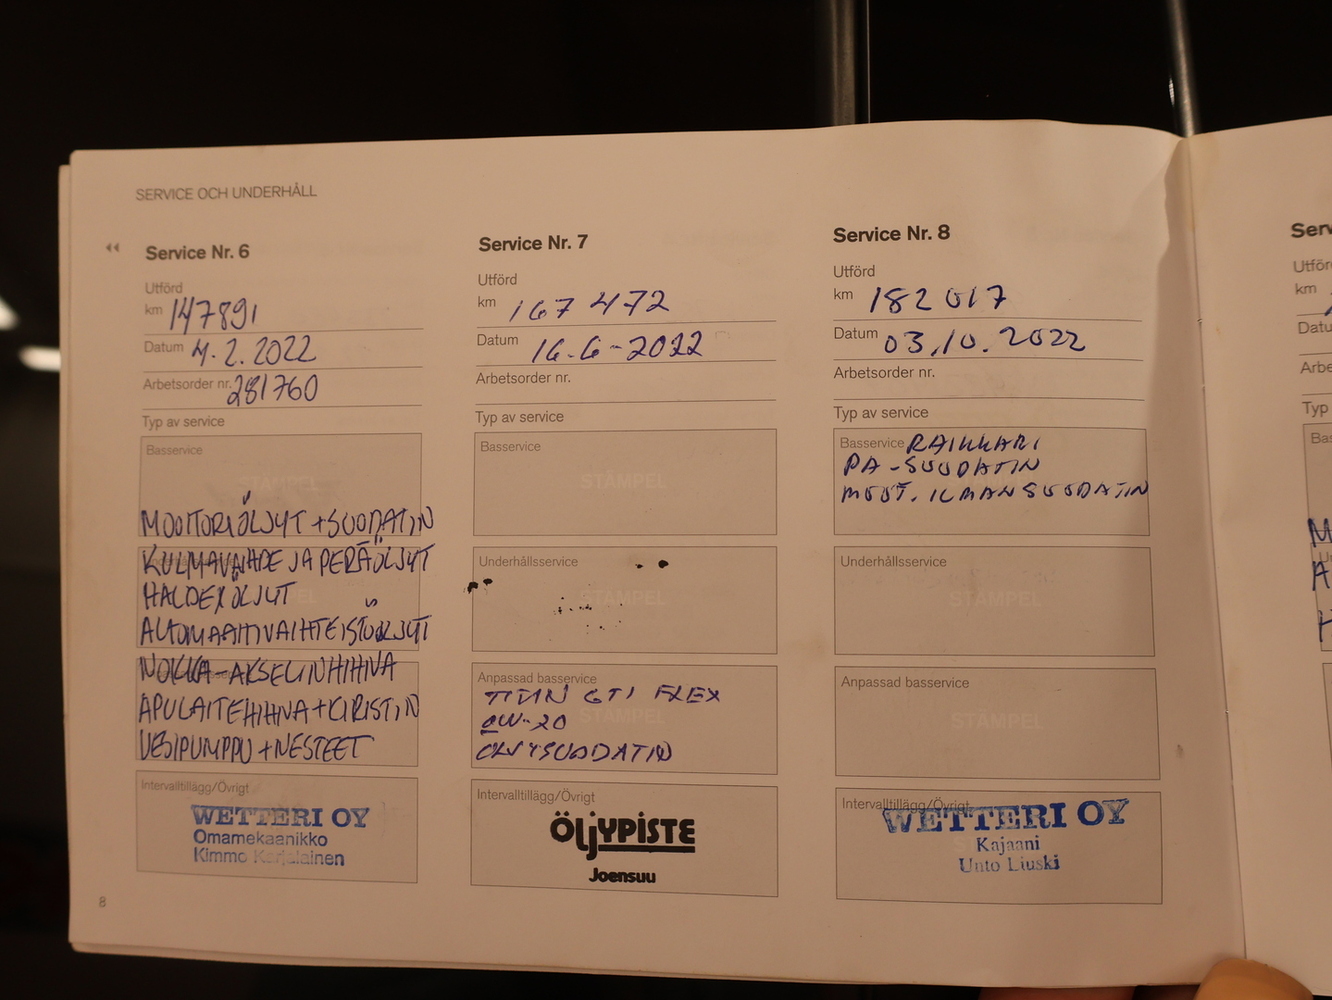 SERVICE OCH UNDERHÅLL
Service Nr. 6
Utförd
km 147891
Datum 4.2.2022
Arbetsorder nr. 281760
Typ av service
Basservice
STÄMPEL
MOOTTORIÖLJYT + SUODATIN
KULMAVAIHDE JA PERÄÖLJYT
HALDEXÖLJYT
AUTOMAATTIVAIHTEISTOÖLJYT
NOKKA-AKSELINHIHNA
APULAITEHIHNA + KIRISTIN
VESIPUMPPU + NESTEET
Intervalltillägg/Övrigt
WETTERI OY
Omamekaanikko
Kimmo Karjalainen
8
Service Nr. 7
Utförd
km 167 472
Datum 16-6-2022
Arbetsorder nr.
Typ av service
Basservice
STÄMPEL
Underhållsservice
STÄMPEL
Anpassad basservice
TITAN GT1 FLEX
STÄMPEL
0W-20
ÖLJYSUODATIN
Intervalltillägg/Övrigt
ÖLJYPISTE
Joensuu
Service Nr. 8
Utförd
km 182 017
Datum 03.10.2022
Arbetsorder nr.
Typ av service
Basservice RAIKKARI
PA-SUODATIN
MOOT. ILMANSUODATIN
Underhållsservice
STÄMPEL
Anpassad basservice
STÄMPEL
Intervalltillägg/Övrigt
WETTERI OY
Kajaani
Unto Liuski
Serv
Utför
km
Datu
Arbe
Typ
Bas